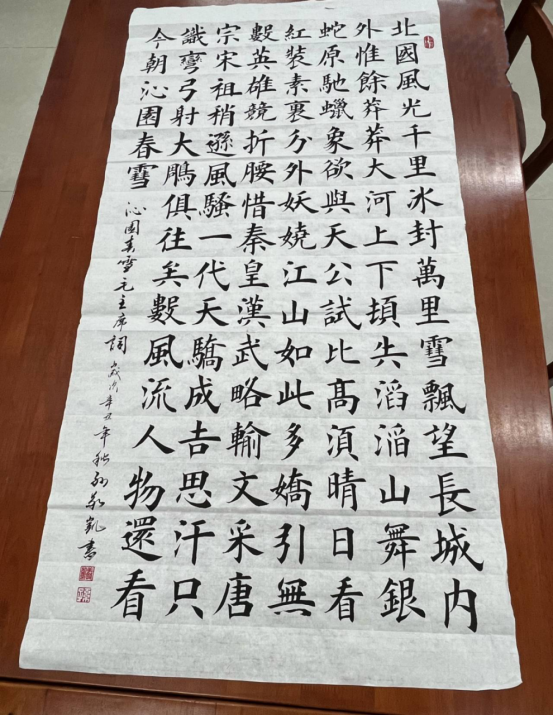 北國風光千里冰封萬里雪飄望長城内
外惟餘莽莽大河上下頓失滔滔山舞銀
蛇原馳蠟象欲與天公試比高須晴日看
紅裝素裹分外妖嬈江山如此多嬌引無
數英雄競折腰惜秦皇漢武略輸文采唐
宗宋祖稍遜風騷一代天驕成吉思汗只
識彎弓射大鵰俱往矣數風流人物還看
今朝沁園春雪
沁園春雪毛主席詞歲次辛丑年秋凱書